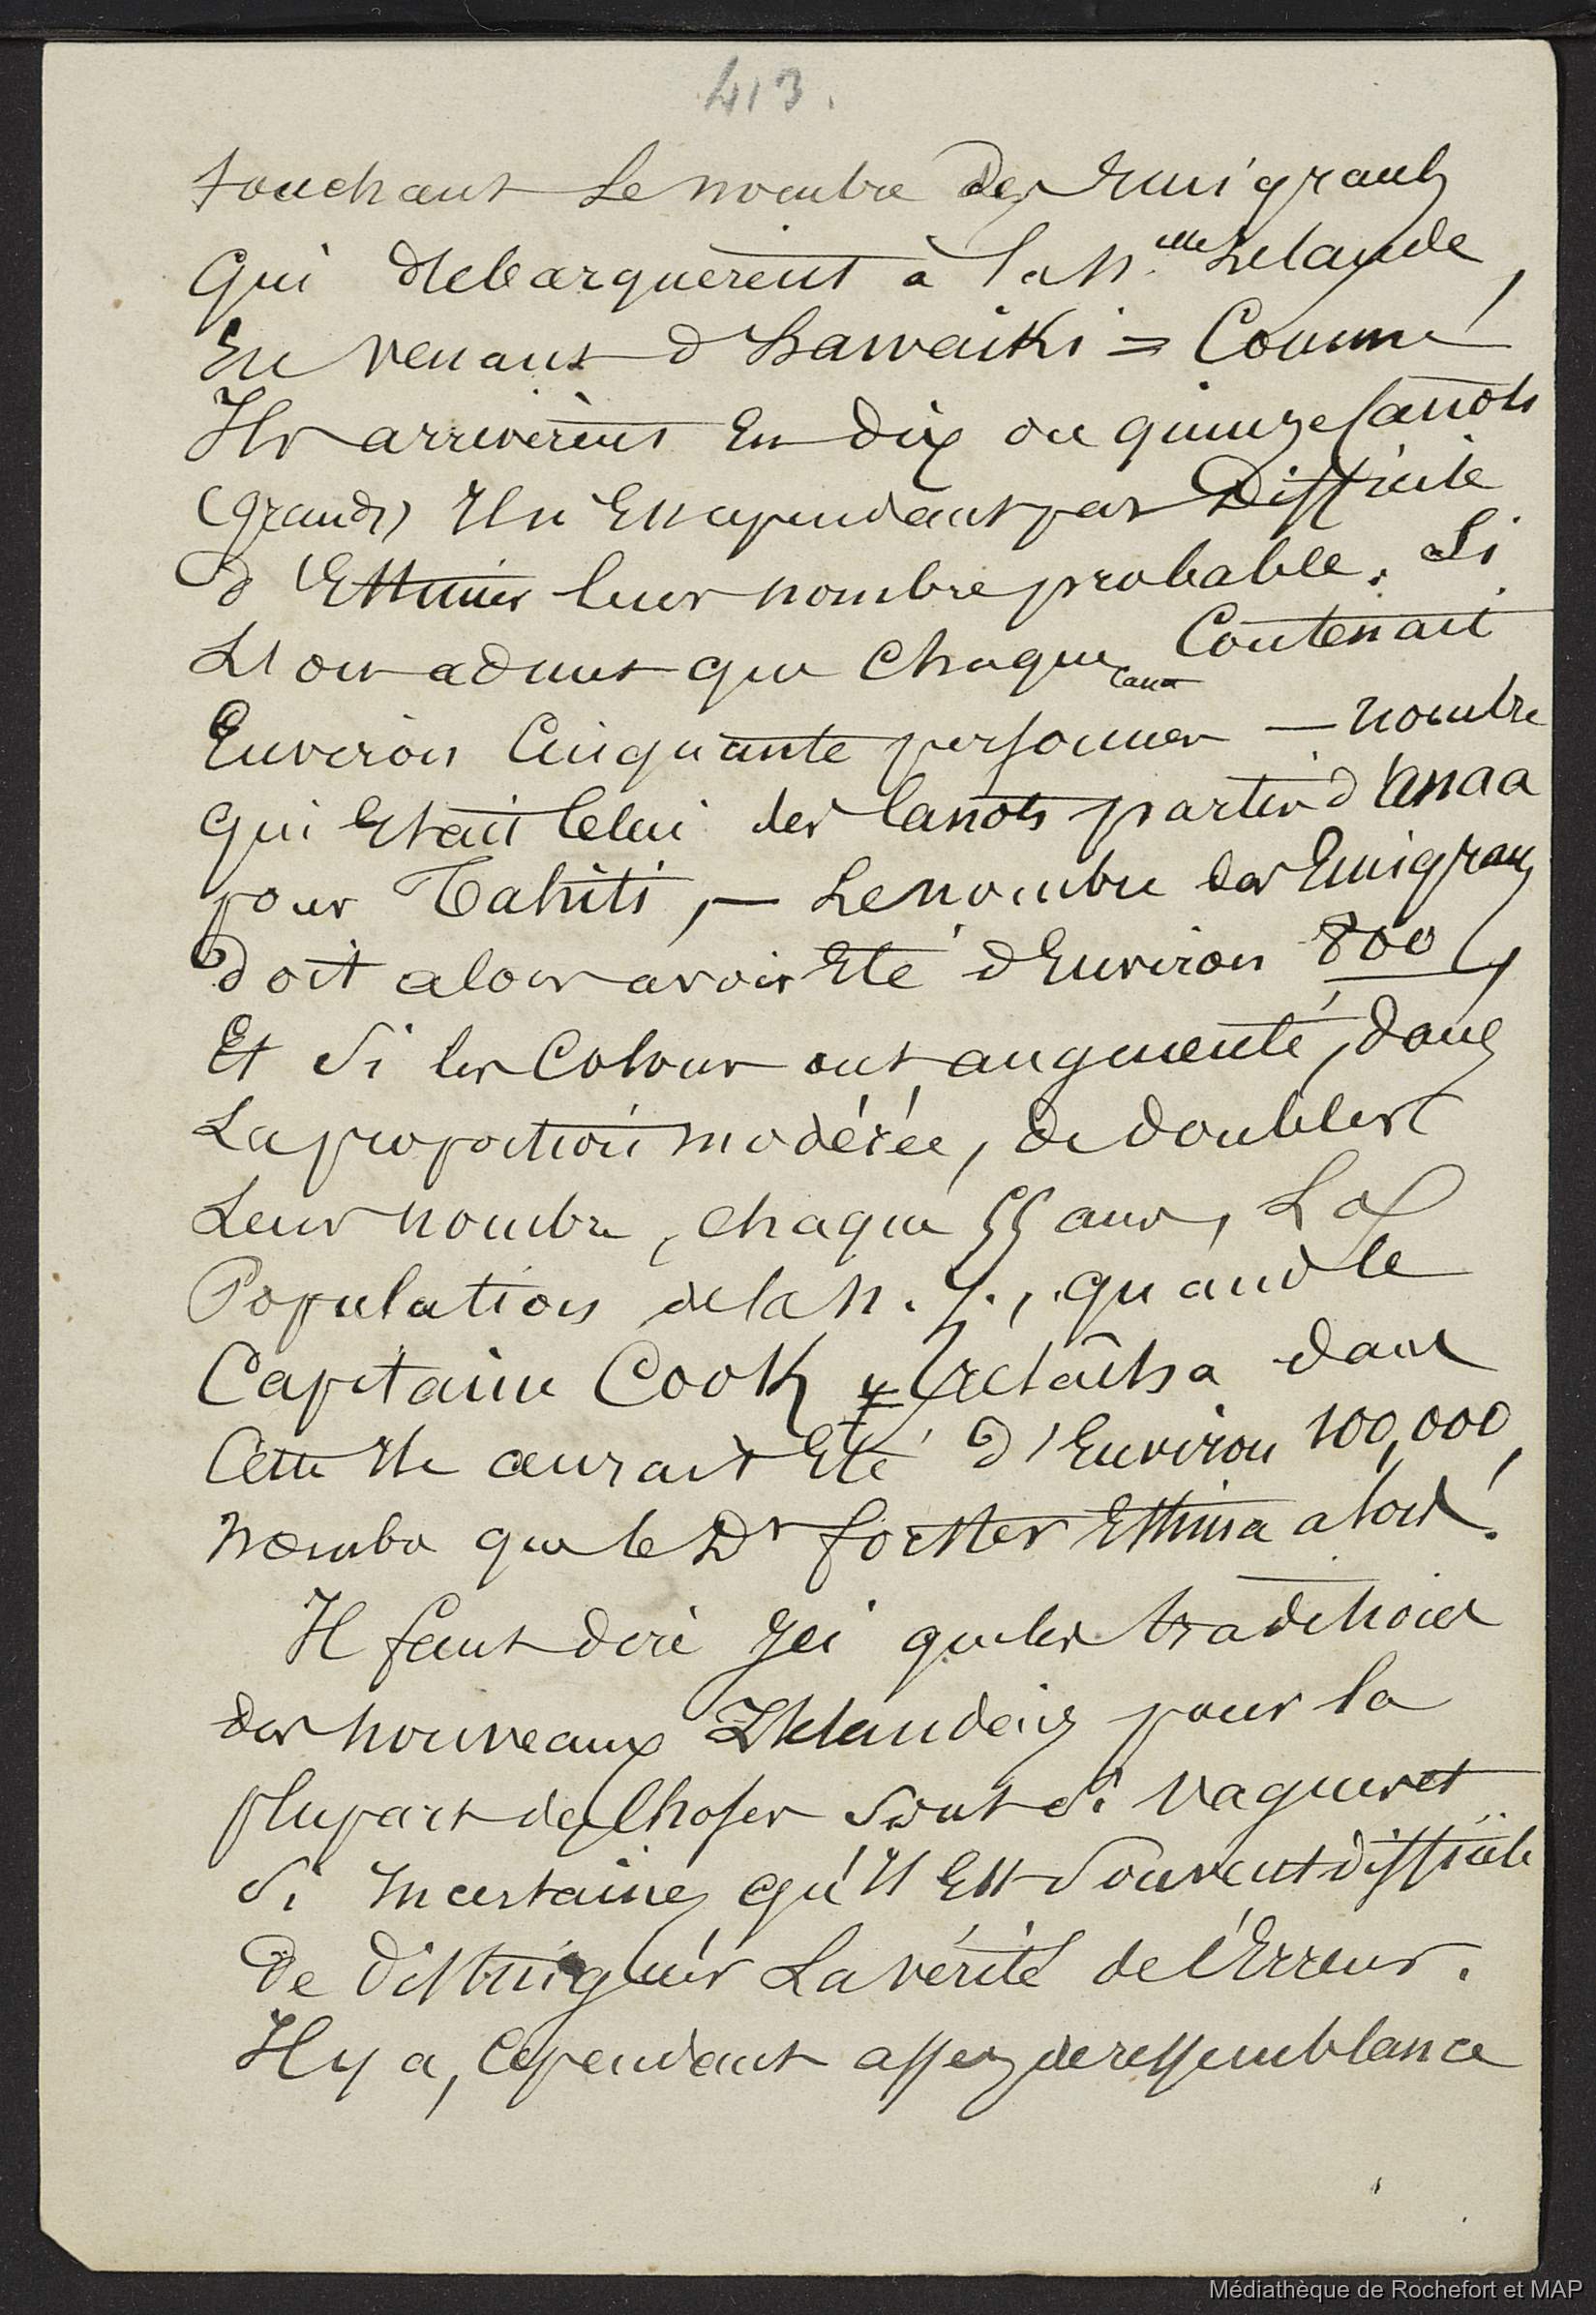 413.
touchant Le nombre des Emigrants
Qui debarquèrent à la N.elle Zélande,
En venant d'Hawaiki = Comme
Ils arrivèrent En dix ou quinze Canots
(grands) Il n'Est cependant pas Difficile
d'Estimer leur nombre probable. Si
L'on admet que Chaque canot Contenait
Environ Cinquante personnes — nombre
Qui Etait Celui des Canots partis d'Anaa
pour Tahiti, — Le nombre des Emigrants
doit alors avoir Eté d'Environ 800,
Et Si les Colons ont augmenté, dans
La proportion modérée, de doubler
Leur nombre, chaque 55 ans, La
Population de la N. Z., quand le
Capitaine Cook relâcha dans
Cette Ile aurait Eté d'Environ 100,000,
Nombre que le Dr Forster Estima alors.
Il faut dire Ici que les traditions
des nouveaux Zélandais pour la
plupart des Choses Sont Si Vagues et
Si Incertaines qu'Il Est Souvent difficile
De distinguer La vérité de l'Erreur.
Il y a, Cependant assez de ressemblance
Médiathèque de Rochefort et MAP